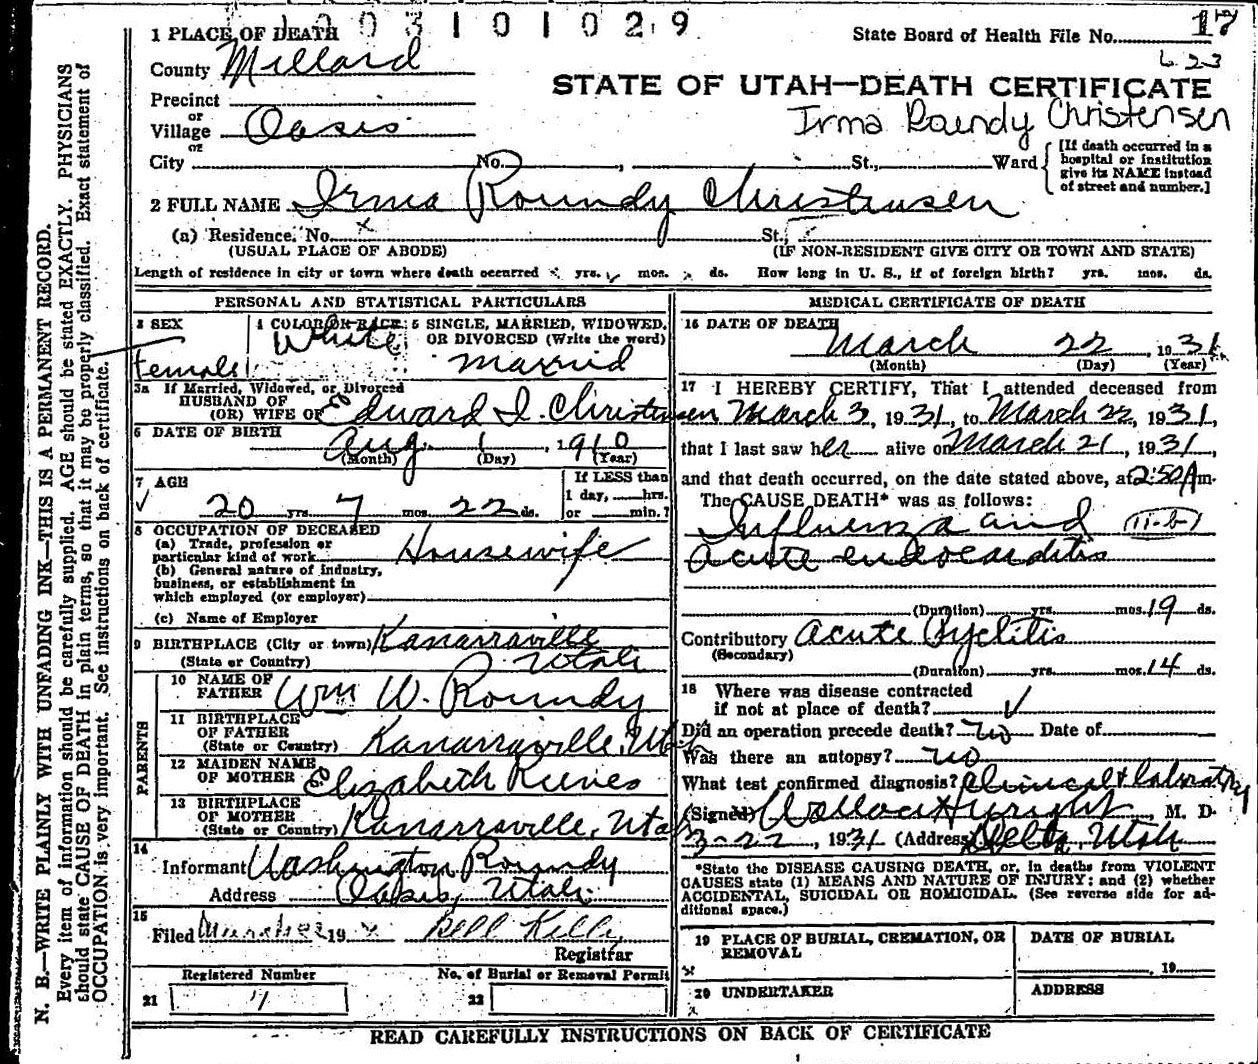 003101029
1 PLACE OF DEATH
State Board of Health File No. 17
County Millard
623
STATE OF UTAH—DEATH CERTIFICATE
Precinct
or
Village Oasis
Irma Roundy Christensen
or
City No. , St., Ward
[If death occurred in a
hospital or institution
give its NAME instead
of street and number.]
2 FULL NAME Irma Roundy Christensen
(a) Residence. No. x St.,
(USUAL PLACE OF ABODE) (IF NON-RESIDENT GIVE CITY OR TOWN AND STATE)
Length of residence in city or town where death occurred yrs. mos. ds. How long in U. S., if of foreign birth? yrs. mos. ds.
PERSONAL AND STATISTICAL PARTICULARS
3 SEX
female
4 COLOR OR RACE
White
5 SINGLE, MARRIED, WIDOWED,
OR DIVORCED (Write the word)
Married
5a If Married, Widowed, or Divorced
HUSBAND OF
(OR) WIFE OF Edward I. Christensen
6 DATE OF BIRTH
Aug. 1, 1910
(Month) (Day) (Year)
7 AGE
20 yrs. 7 mos. 22 ds.
If LESS than
1 day, hrs.
or min.?
8 OCCUPATION OF DECEASED
(a) Trade, profession or
particular kind of work Housewife
(b) General nature of industry,
business, or establishment in
which employed (or employer)
(c) Name of Employer
9 BIRTHPLACE (City or town) Kanarraville
(State or Country) Utah
PARENTS
10 NAME OF
FATHER Wm W. Roundy
11 BIRTHPLACE
OF FATHER
(State or Country) Kanarraville, Ut
12 MAIDEN NAME
OF MOTHER Elizabeth Reeves
13 BIRTHPLACE
OF MOTHER
(State or Country) Kanarraville, Utah
14
Informant Washington Roundy
Address Oasis, Utah
15
Filed 19 Bell Kelly
Registrar
Registered Number No. of Burial or Removal Permit
21 22
MEDICAL CERTIFICATE OF DEATH
16 DATE OF DEATH
March 22, 1931
(Month) (Day) (Year)
17 I HEREBY CERTIFY, That I attended deceased from
March 3, 1931, to March 22, 1931,
that I last saw her alive on March 21, 1931,
and that death occurred, on the date stated above, at 2:50 Am.
The CAUSE DEATH* was as follows:
Influenza and 11-b
Acute endocarditis
(Duration) yrs. mos. 19 ds.
Contributory Acute Pyelitis
(Secondary)
(Duration) yrs. mos. 14 ds.
18 Where was disease contracted
if not at place of death?
Did an operation precede death? no Date of
Was there an autopsy? no
What test confirmed diagnosis? Clinical & Laboratory
(Signed) M. D.
3-22, 1931 (Address) Delta, Utah
*State the DISEASE CAUSING DEATH, or, in deaths from VIOLENT
CAUSES state (1) MEANS AND NATURE OF INJURY; and (2) whether
ACCIDENTAL, SUICIDAL OR HOMICIDAL. (See reverse side for ad-
ditional space.)
19 PLACE OF BURIAL, CREMATION, OR
REMOVAL
DATE OF BURIAL
, 19
20 UNDERTAKER
ADDRESS
READ CAREFULLY INSTRUCTIONS ON BACK OF CERTIFICATE
N. B.—WRITE PLAINLY WITH UNFADING INK—THIS IS A PERMANENT RECORD.
Every item of information should be carefully supplied. AGE should be stated EXACTLY. PHYSICIANS
should state CAUSE OF DEATH in plain terms, so that it may be properly classified. Exact statement of
OCCUPATION is very important. See instructions on back of certificate.